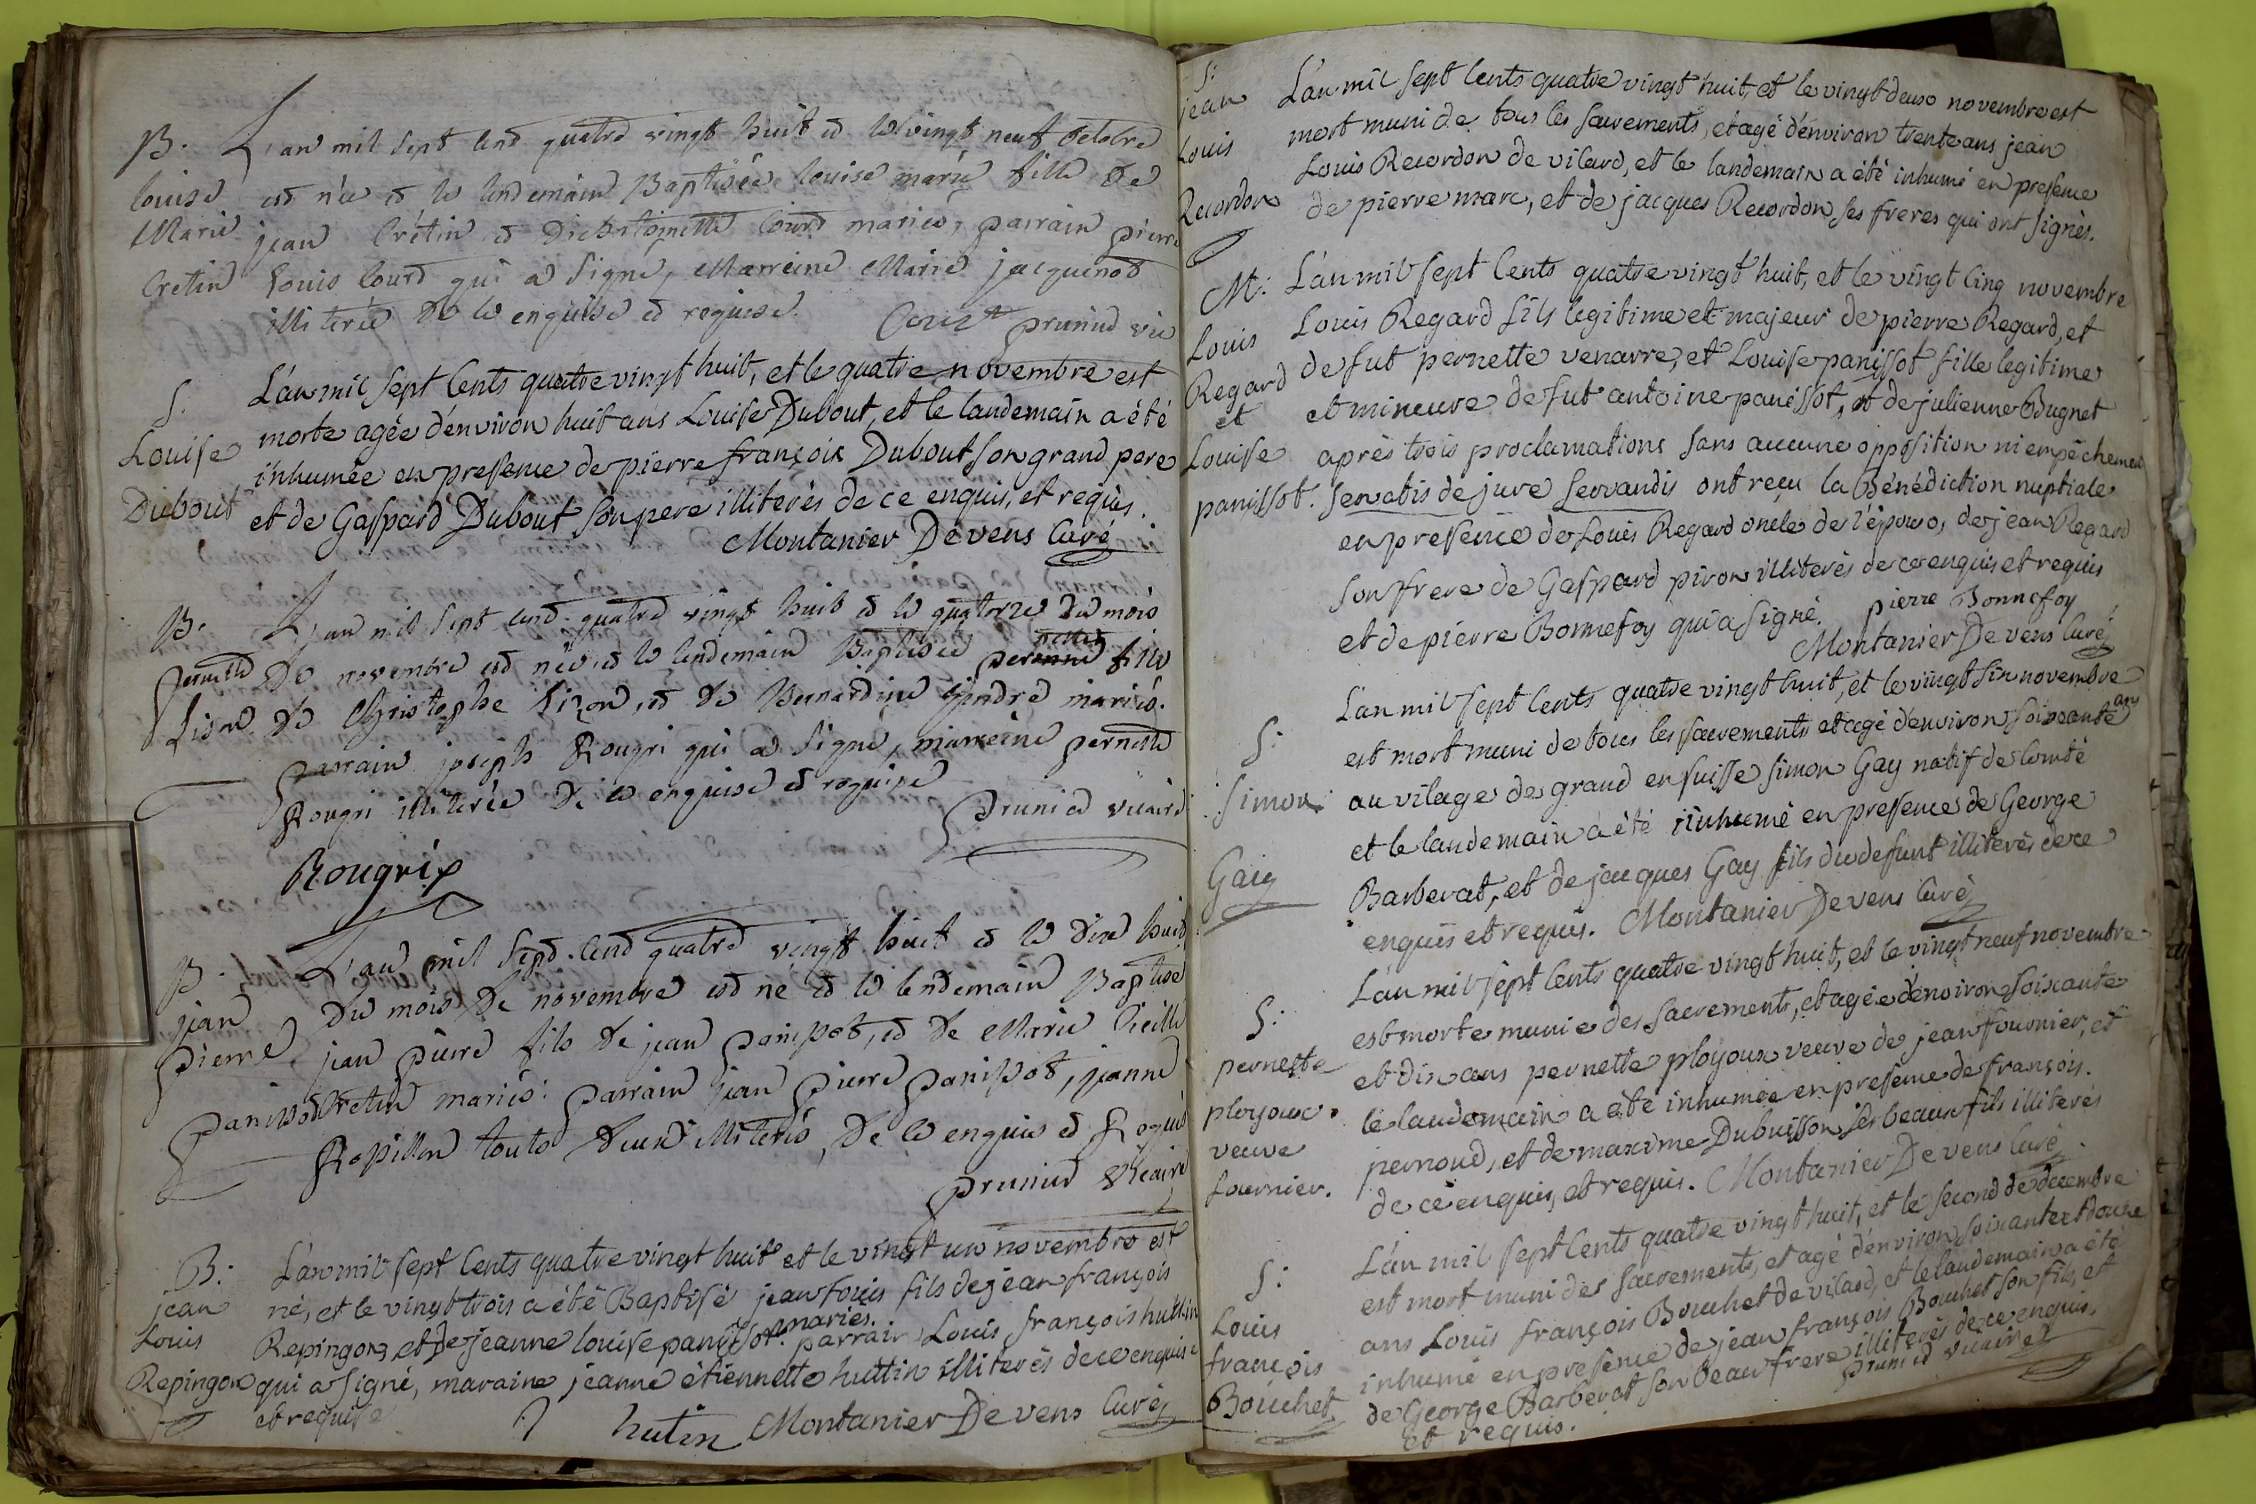 B.
louise
Marie
Cretin
L'an mil sept cent quatre vingt huit et le vingt neuf octobre
est née et le lendemain Baptisée louise marie fille de
jean Crétin et Antoinette Court mariés, parrain pierre
louis Court qui a signé, Marreine Marie jacquenot
illiterée de ce enquise et requise.
Court prunier vic
S.
Louise
Dubout
L'an mil sept cents quatre vingt huit, et le quatre novembre est
morte agée d'environ huit ans Louise Dubout, et le landemain a été
inhumée en presence de pierre françois Dubout son grand pere
et de Gaspard Dubout son pere illiterés de ce enquis, et requis.
Montanier Devens Curé
B.
pernette
L'an mil sept cent quatre vingt huit et le quatorze du mois
de novembre est née et le lendemain Baptisée pernette fille
de Christophe Lizon, et de Bernardine Gindre mariés.
parrain joseph Rougri qui a signé, marreine pernette
Rougri illiterée de ce enquise et requise
prunier vicaire
Rougrix
B.
jean
pierre
panissot
L'an mil sept cent quatre vingt huit et le dix huit
du mois de novembre est né et le lendemain Baptisé
jean pierre fils de jean panissot, et de Marie Vieille
Cretin mariés. parrain jean pierre panissot, jeanne
touts deux illiterés, de ce enquis et Requis
prunier vicaire
B.
jean
Louis
Repingon
L'an mil sept cents quatre vingt huit et le vingt un novembre est
né, et le vingt trois a été Baptisé jean Louis fils de jean françois
Repingon, et de jeanne louise panissot mariés. parrain Louis françois huttin
qui a signé, maraine jeanne étiennette huttin illiterés de ce enquise
et requise
hutin Montanier Devens Curé
S:
jean
Louis
Recordon
L'an mil sept cents quatre vingt huit, et le vingt deux novembre est
mort muni de tous les sacrements, et agé d'environ trente ans jean
Louis Recordon de vilard, et le landemain a été inhumé en presence
de pierre marc, et de jacques Recordon, ses freres qui ont signés.
M:
Louis
Regard
et
Louise
panissot.
L'an mil sept cents quatre vingt huit, et le vingt cinq novembre
Louis Regard fils legitime et majeur de pierre Regard, et
de fut pernette venarre, et Louise panissot fille legitime
et mineure de fut antoine panissot, et de julienne Bugnet
après trois proclamations sans aucune opposition ni empêchement
servatis de jure servandis ont reçu la Bénédiction nuptiale
en presence de Louis Regard oncle de l'époux, de jean Regard
son frere de Gaspard piron illiterés de ce enquis et requis
et de pierre Bonnefoy qui a signé. pierre Bonnefoy
Montanier Devens Curé
S:
Simon
Gay
L'an mil sept cents quatre vingt huit, et le vingt six novembre
est mort muni de tous les sacrements et agé d'environ soixante ans
au vilage des grand en suisse simon Gay natif de Comté
et le landemain a été inhumé en presence de George
Barberat, et de jacques Gay fils du defunt illiterés de ce
enquis et requis. Montanier Devens Curé
S:
pernette
ployoux.
veuve
fournier.
L'an mil sept cents quatre vingt huit, et le vingt neuf novembre
est morte munie des sacrements, et agée d'environ soixante
et dix ans pernette ployoux veuve de jean fournier, et
le landemain a été inhumée en presence de françois.
pernoud, et de maxime Dubuisson ses beaux fils illiterés
de ce enquis, et requis. Montanier Devens Curé
S:
Louis
françois
Bouchet
L'an mil sept cents quatre vingt huit, et le second de decembre
est mort muni des sacrements, et agé d'environ soixante et douze
ans Louis françois Bouchet de vilard, et le landemain a été
inhumé en presence de jean françois Bouchet son fils, et
de George Barberat son beau frere illiterés de ce enquis.
et requis. prunier vicaire